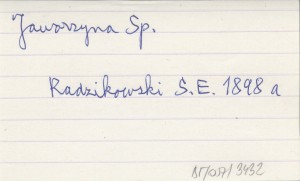 Jaworzyna Sp.
Radzikowski S.E. 1898 a
BT/057/3432